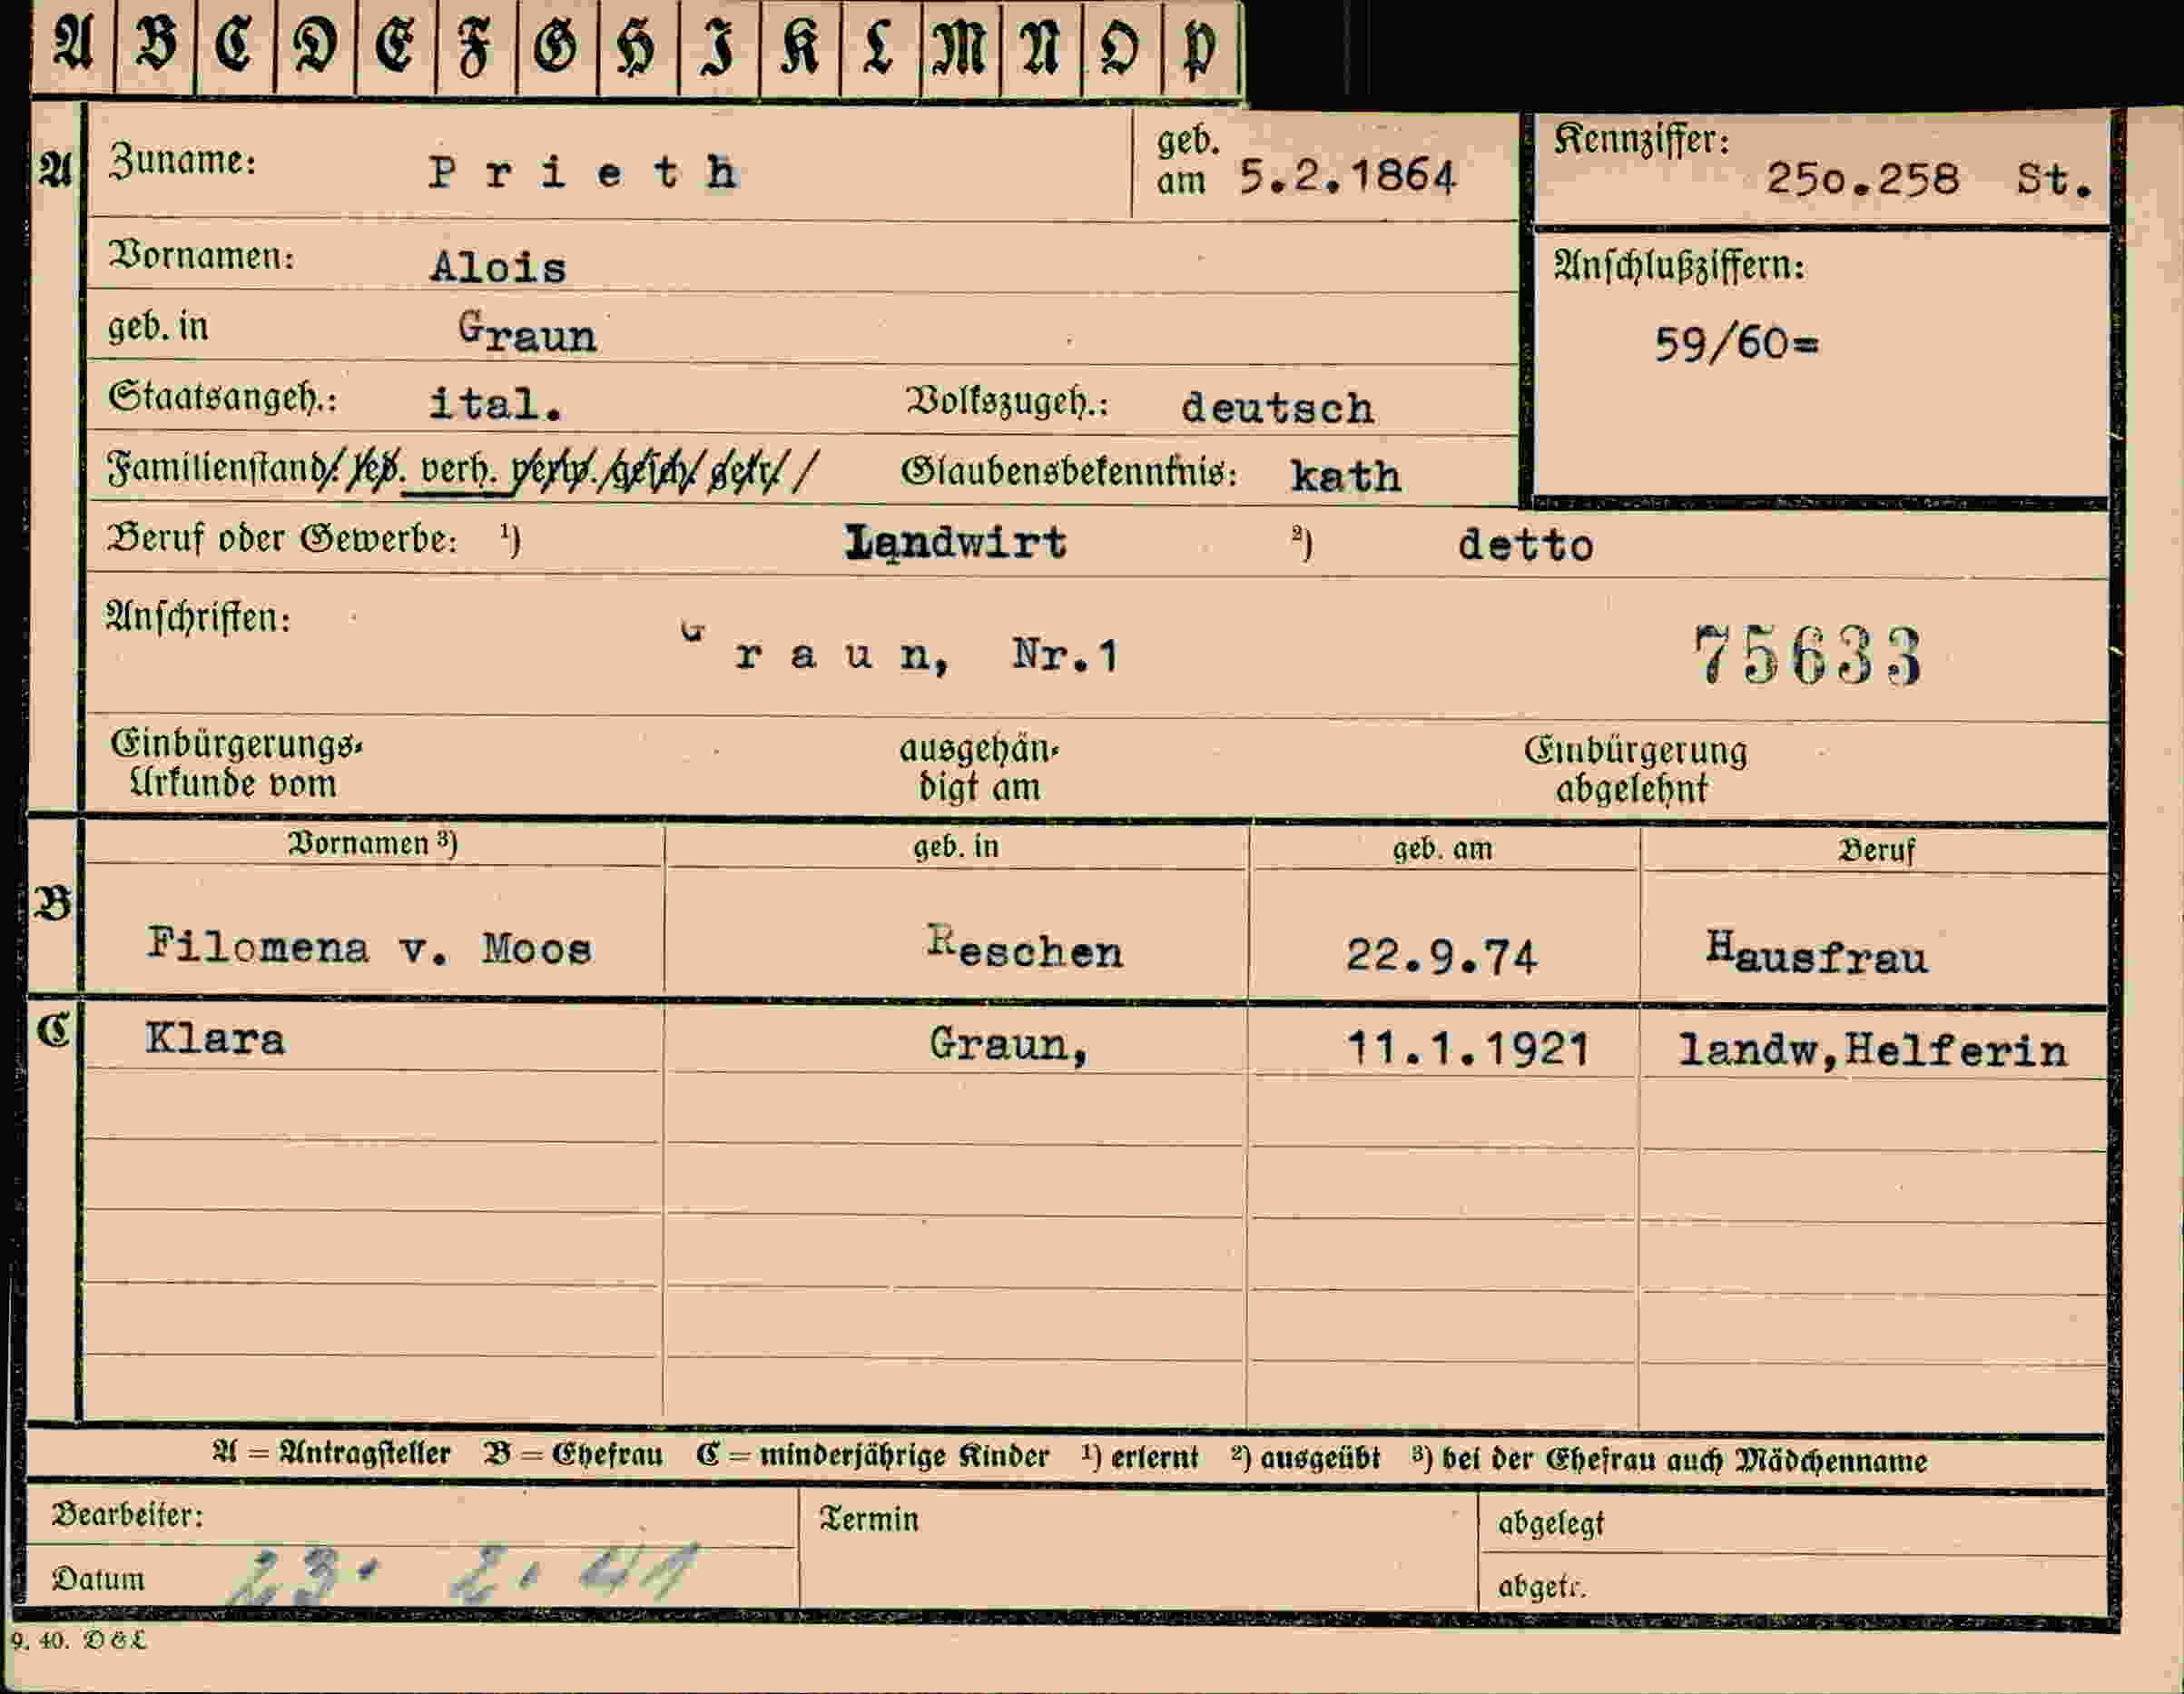 A B C D E F G H I K L M N O P
A Zuname: Prieth geb. am 5.2.1864 Kennziffer: 25o.258 St.
Vornamen: Alois Anschlußziffern:
geb. in Graun 59/60=
Staatsangeh.: ital. Volkszugeh.: deutsch
Familienstand: led. verh. verw. gesch. getr. Glaubensbekenntnis: kath
Beruf oder Gewerbe: ¹) Landwirt ²) detto
Anschriften: Graun, Nr.1 75633
Einbürgerungs- ausgehän- Einbürgerung
Urkunde vom digt am abgelehnt
Vornamen ³) geb. in geb. am Beruf
B Filomena v. Moos Reschen 22.9.74 Hausfrau
C Klara Graun, 11.1.1921 landw,Helferin
A = Antragsteller B = Ehefrau C = minderjährige Kinder ¹) erlernt ²) ausgeübt ³) bei der Ehefrau auch Mädchenname
Bearbeiter: Termin abgelegt
Datum 23. 2. 41 abgetr.
9. 40. DEL